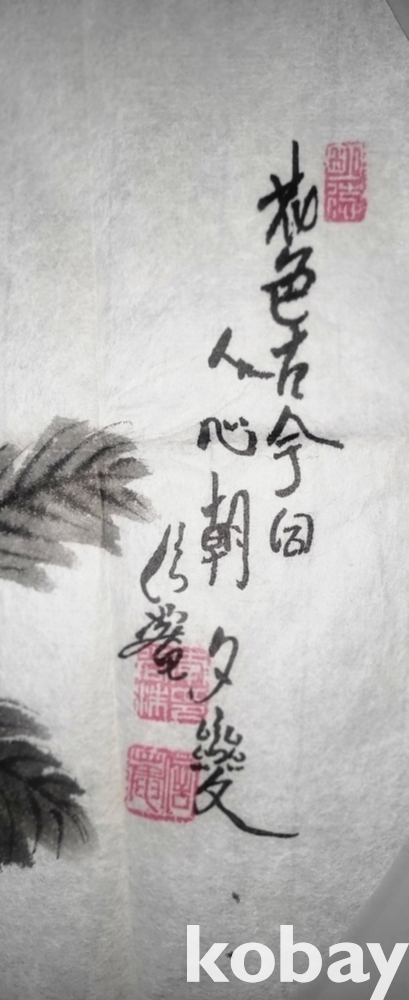 花色古今同
人心朝夕變
kobay